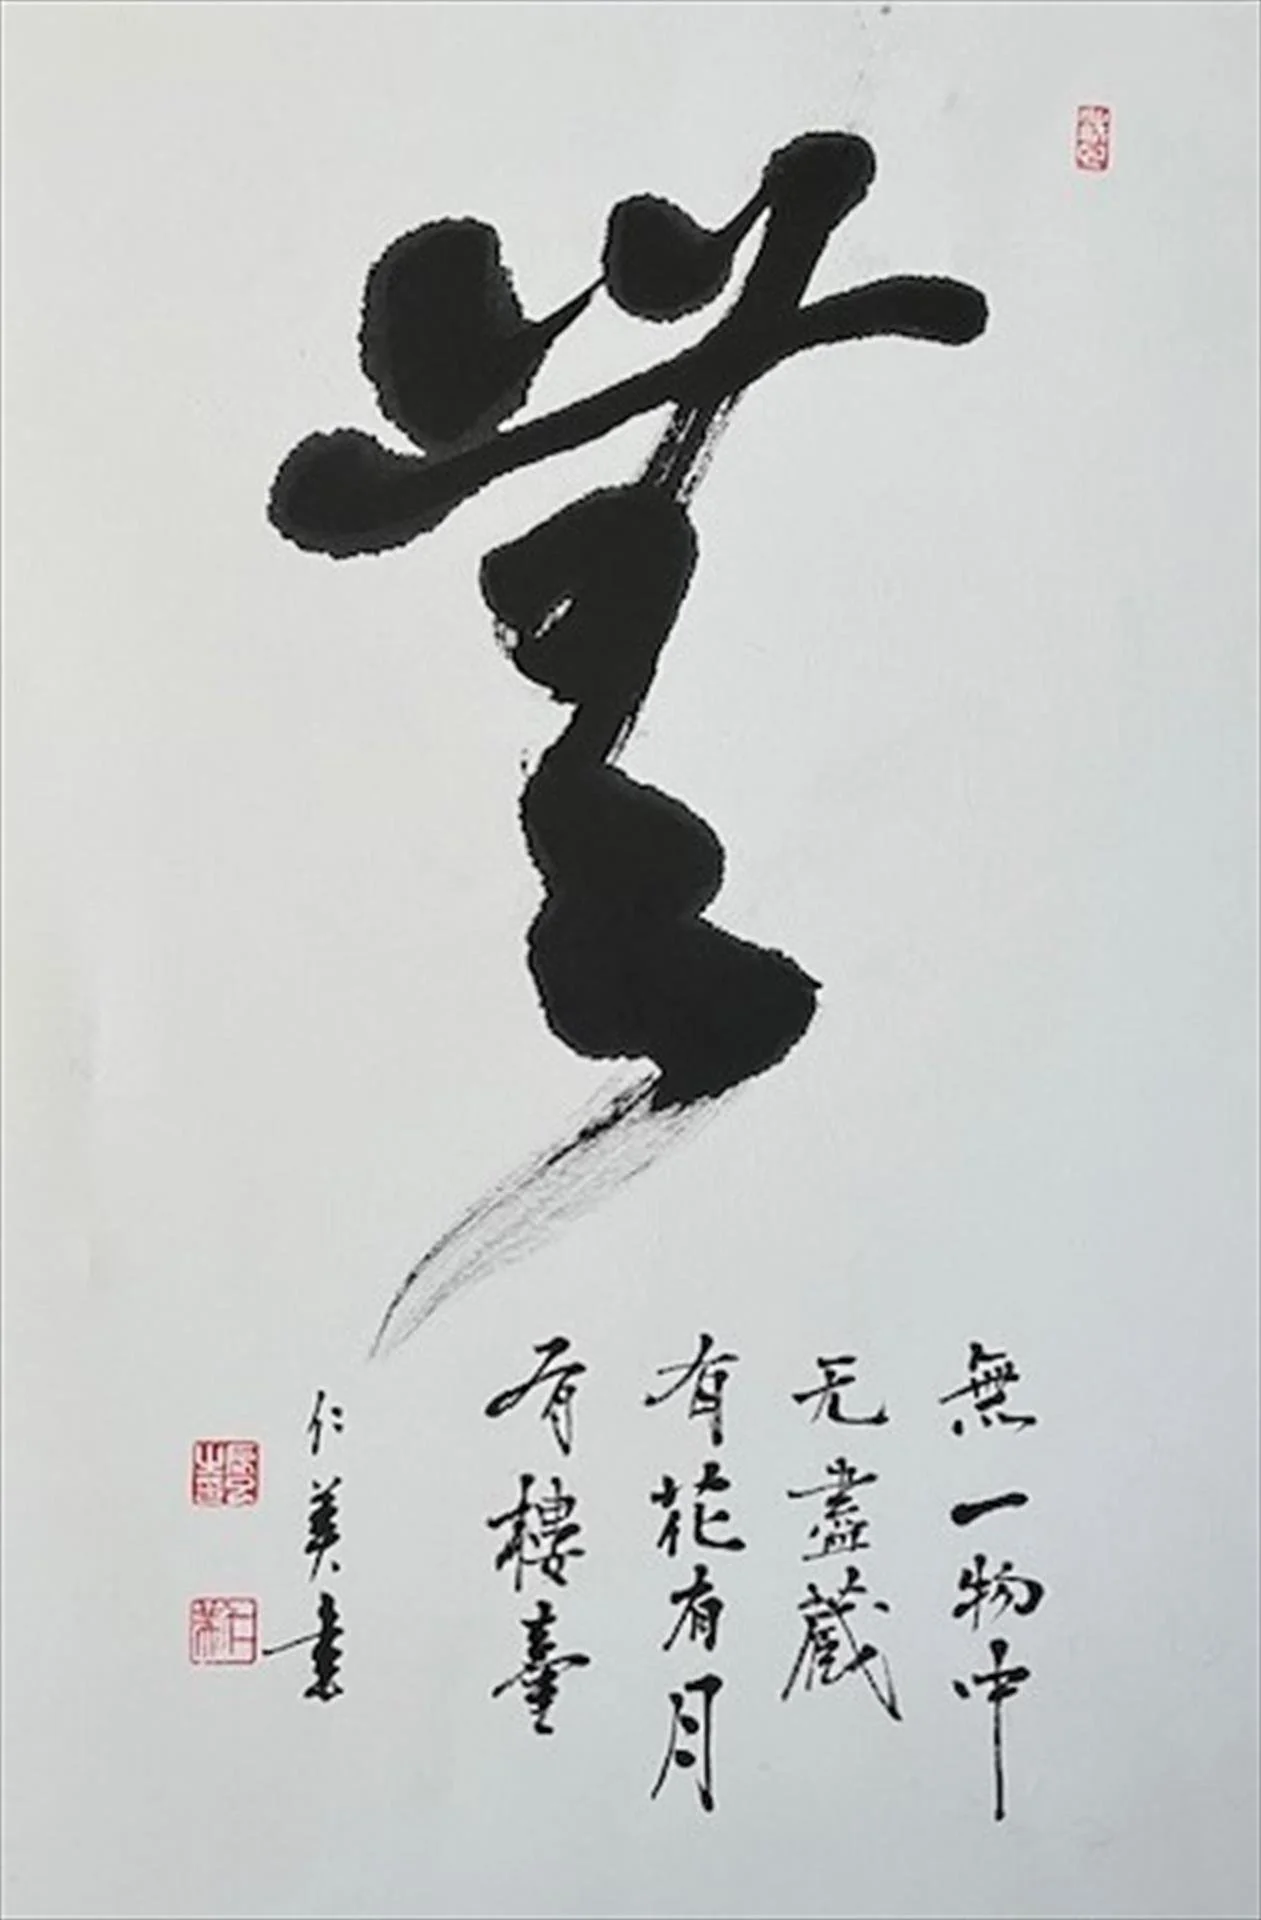 無
無一物中
无盡藏
有花有月
有樓臺
仁美書